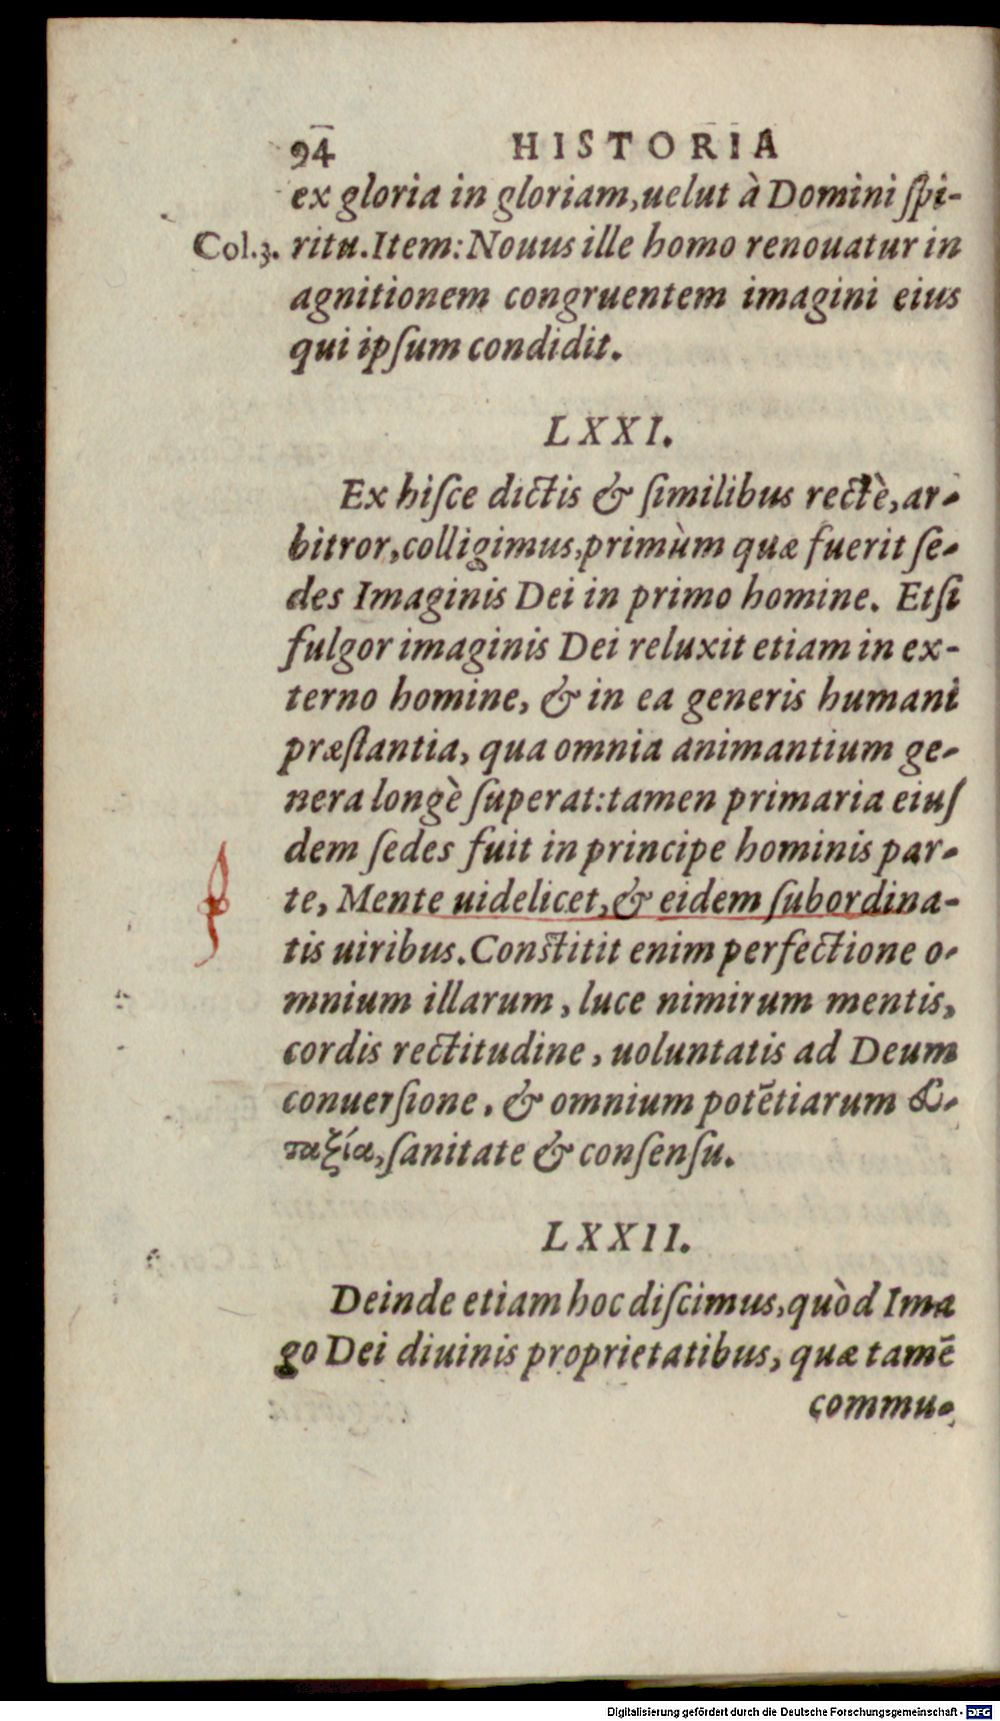 94 HISTORIA
ex gloria in gloriam, uelut à Domini ſpi-
Col.3. ritu. Item: Nouus ille homo renouatur in
agnitionem congruentem imagini eius
qui ipſum condidit.
LXXI.
Ex hiſce dictis & ſimilibus rectè, ar-
bitror, colligimus, primùm quæ fuerit ſe-
des Imaginis Dei in primo homine. Etſi
fulgor imaginis Dei reluxit etiam in ex-
terno homine, & in ea generis humani
præſtantia, qua omnia animantium ge-
nera longè ſuperat: tamen primaria eiuſ
dem ſedes fuit in principe hominis par-
te, Mente uidelicet, & eidem ſubordina-
tis uiribus. Conſtitit enim perfectione o-
mnium illarum, luce nimirum mentis,
cordis rectitudine, uoluntatis ad Deum
conuerſione, & omnium potẽtiarum εὐ-
ταξία, ſanitate & conſenſu.
LXXII.
Deinde etiam hoc diſcimus, quòd Ima
go Dei diuinis proprietatibus, quæ tamẽ
commu-
Digitalisierung gefördert durch die Deutsche Forschungsgemeinschaft - DFG